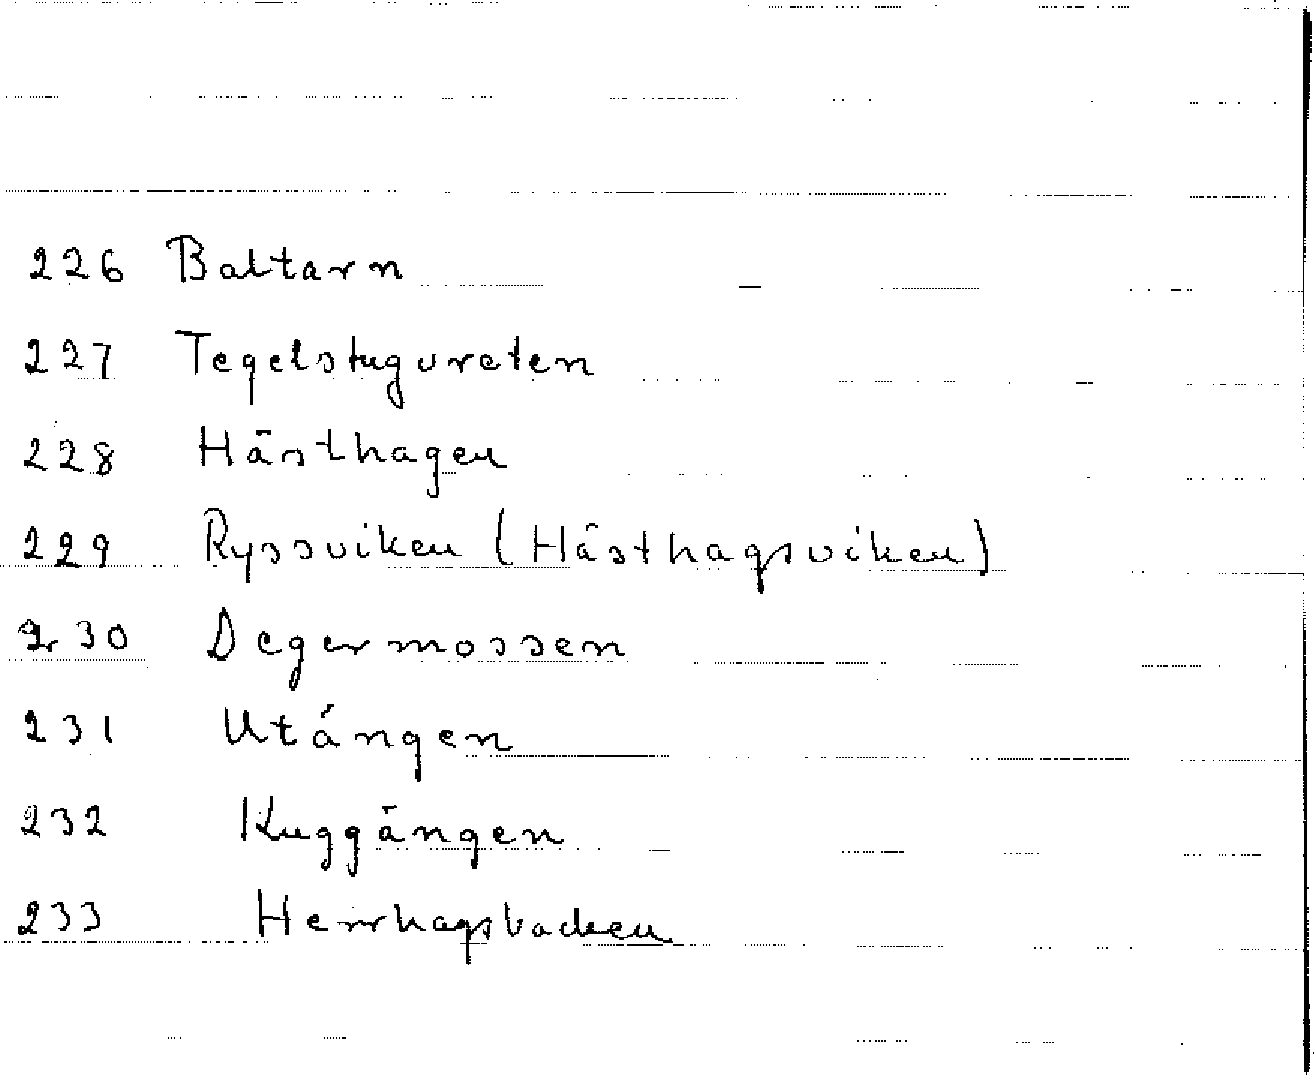 226 Baltarn
227 Tegelstugureten
228 Hästhagen
229 Ryssviken (Hästhagsviken)
230 Degermossen
231 Utängen
232 Kuggängen
233 Herrhagsbacken